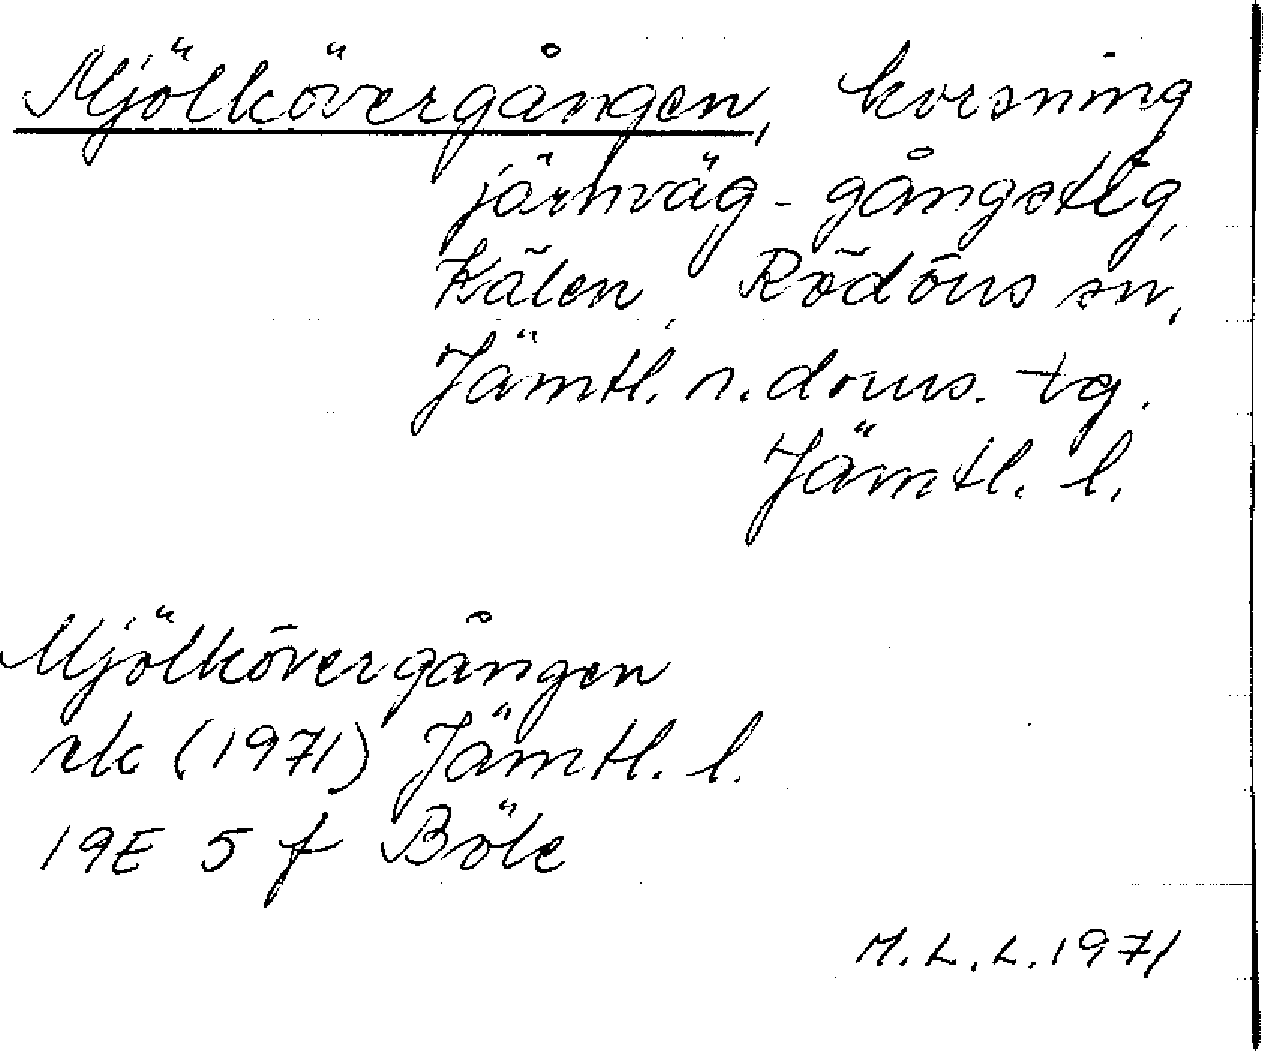 Mjölkövergången, korsning
järnväg - gångstig,
Kälen, Rödöns sn,
Jämtl. n. doms. tg.
Jämtl. l.
Mjölkövergången
rk (1971) Jämtl. l.
19E 5 f Böle
M. L. L. 1971